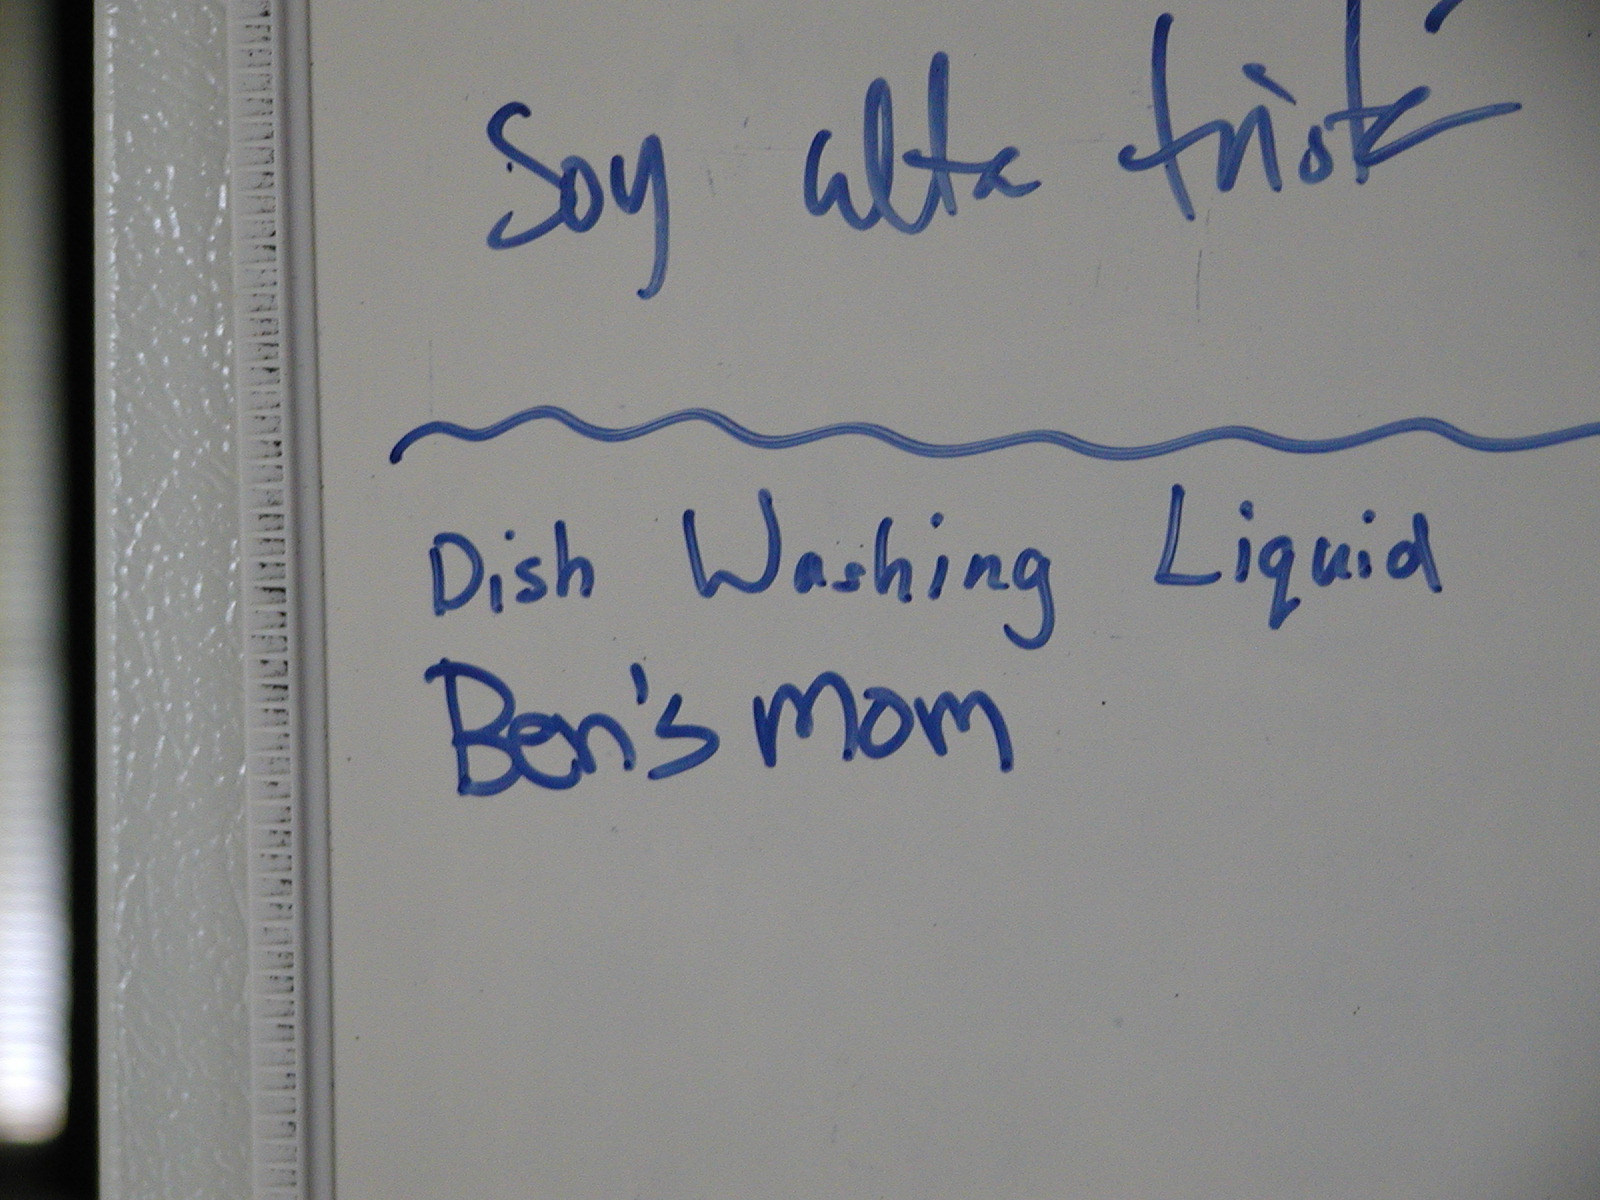 Soy alta
Dish Washing Liquid
Ben's mom